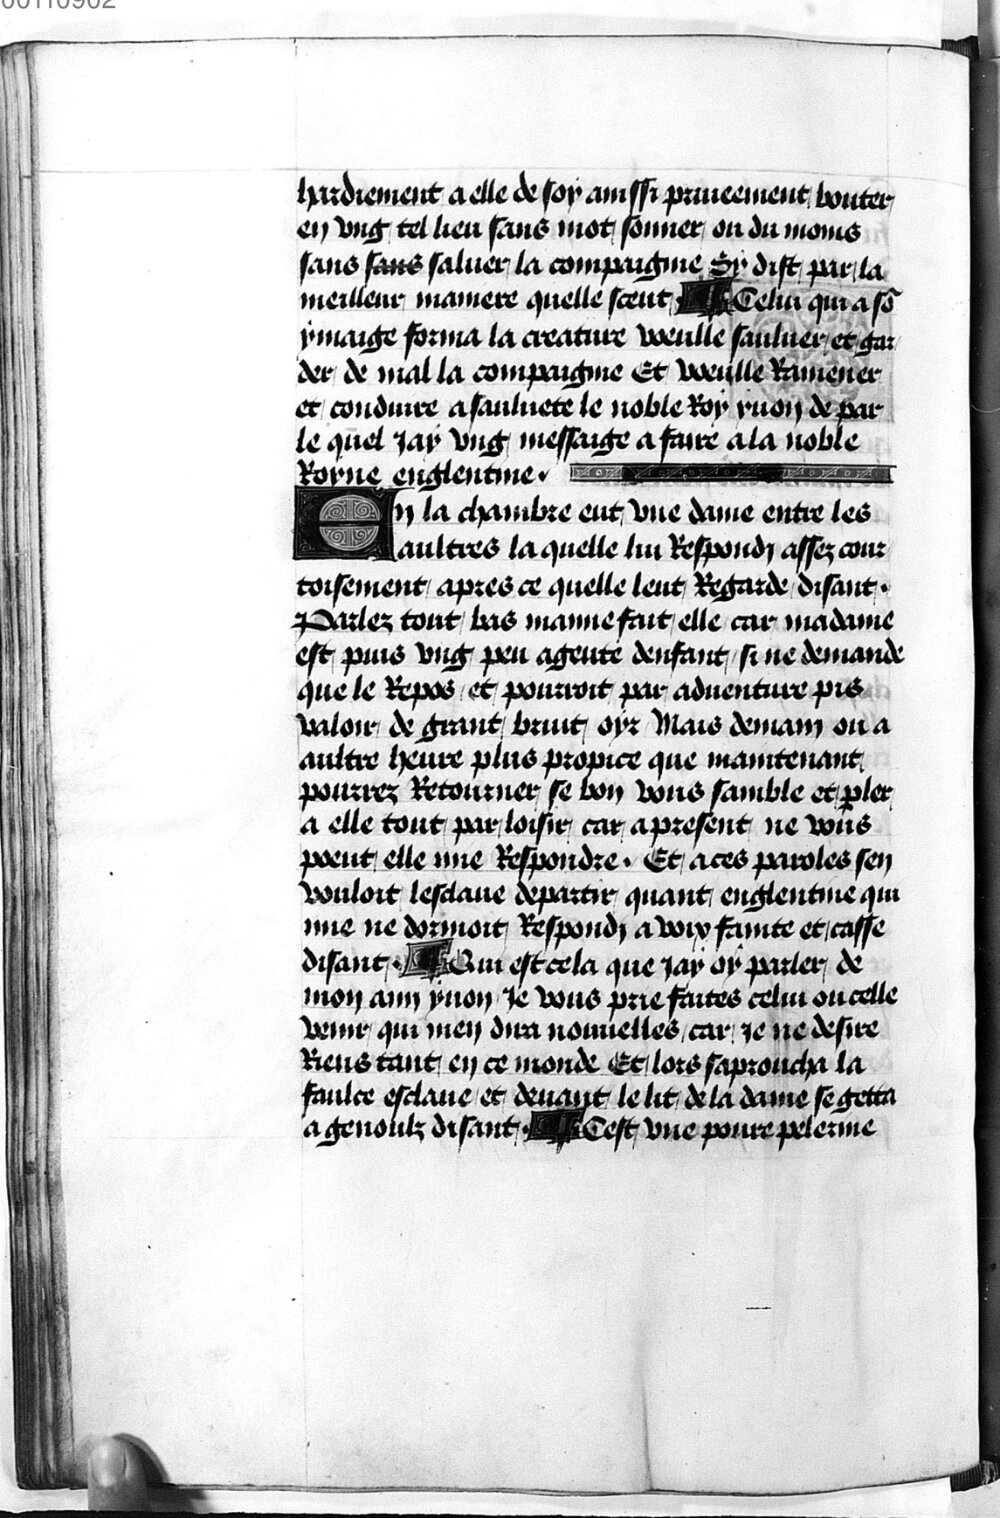 00110902
hardiement a elle de soy ainssi priueement bouter
en vng tel lieu sans mot sonner ou du moins
sans sans saluer la compaignie Sy dist par la
meilleur maniere quelle sceut Celui qui a sō
ymaige forma la creature voeulle sauluer et gar
der de mal la compaignie Et voeulle Ramener
et conduire a sauluete le noble Roy yuon de par
le quel Jay vng messaige a faire a la noble
Royne englentine.
En la chambre eut vne dame entre les
aultres la quelle lui Respondj assez cour
toisement apres ce quelle leut Regarde disant.
Parlez tout bas mamie fait elle car madame
est puis vng peu agente denfant si ne demande
que le Repos et pourroit par aduenture pis
valoir de grant bruit oyr Mais demain ou a
aultre heure plus propice que maintenant
pourrez Retourner se bon vous samble et pler
a elle tout par loisir car apresent ne vous
poeut elle mie Respondre. Et a ces paroles sen
vouloit lesclaue departir quant englentine qui
mie ne dormoit Respondj a voix fainte et casse
disant. Qui est cela que Jay oy parler de
mon amy yuon Je vous prie faites celui ou celle
venir qui men dira nouuelles car Je ne desire
Riens tant en ce monde Et lors saproucha la
faulce esclaue et deuant le lit de la dame se getta
a genoulz disant. Cest vne poure pelerine